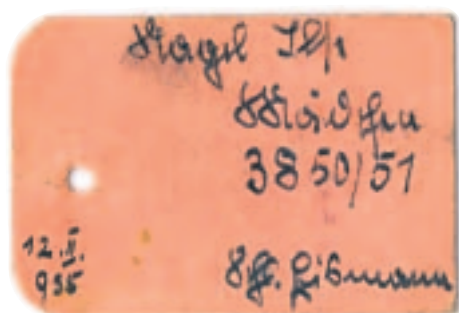 Nagel Ilse
Mädchen
3850/51
12.II.
935
Lißmann